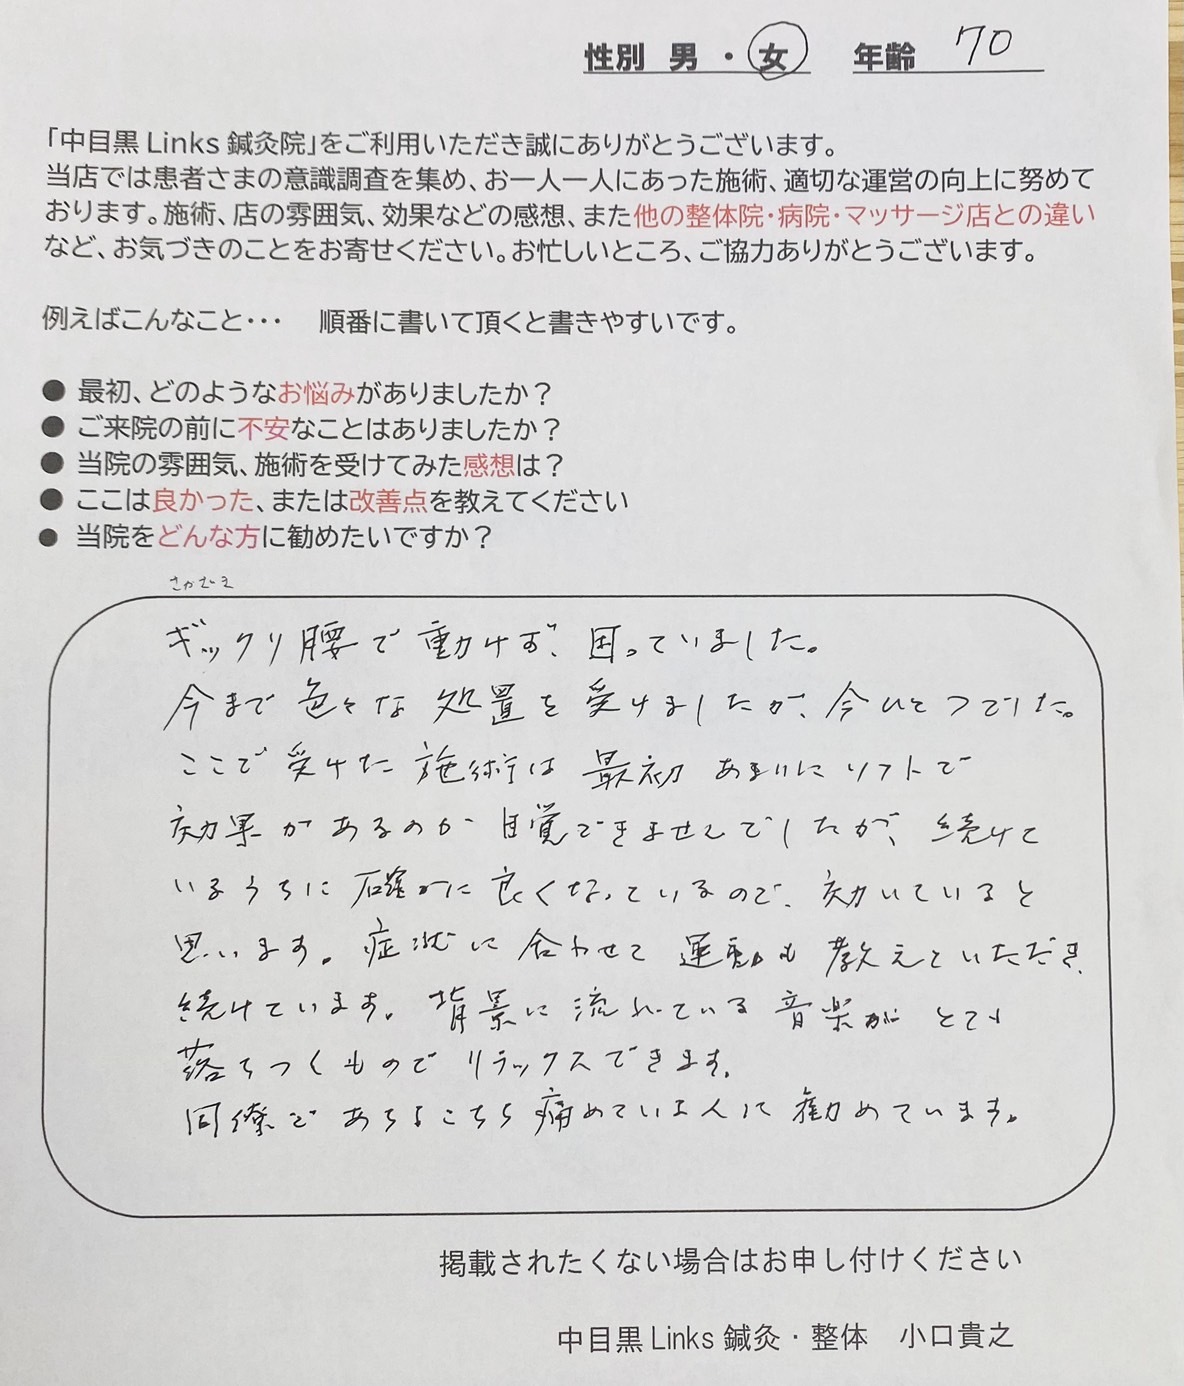 性別 男 ・ 女 年齢 70
「中目黒 Links 鍼灸院」をご利用いただき誠にありがとうございます。
当店では患者さまの意識調査を集め、お一人一人にあった施術、適切な運営の向上に努めて
おります。施術、店の雰囲気、効果などの感想、また他の整体院・病院・マッサージ店との違い
など、お気づきのことをお寄せください。お忙しいところ、ご協力ありがとうございます。
例えばこんなこと・・・ 順番に書いて頂くと書きやすいです。
● 最初、どのようなお悩みがありましたか？
● ご来院の前に不安なことはありましたか？
● 当院の雰囲気、施術を受けてみた感想は？
● ここは良かった、または改善点を教えてください
● 当院をどんな方に勧めたいですか？
ギックリ腰で動けず、困っていました。
今まで色々な処置を受けましたが、今ひとつでした。
ここで受けた施術は最初あまりにソフトで
効果があるのか自覚できませんでしたが、続けて
いるうちに確かに良くなっているので、効いていると
思います。症状に合わせて運動も教えていただき、
続けています。背景に流れている音楽がとても
落ちつくものでリラックスできます。
同僚であちこち痛めている人に勧めています。
掲載されたくない場合はお申し付けください
中目黒 Links 鍼灸・整体 小口貴之